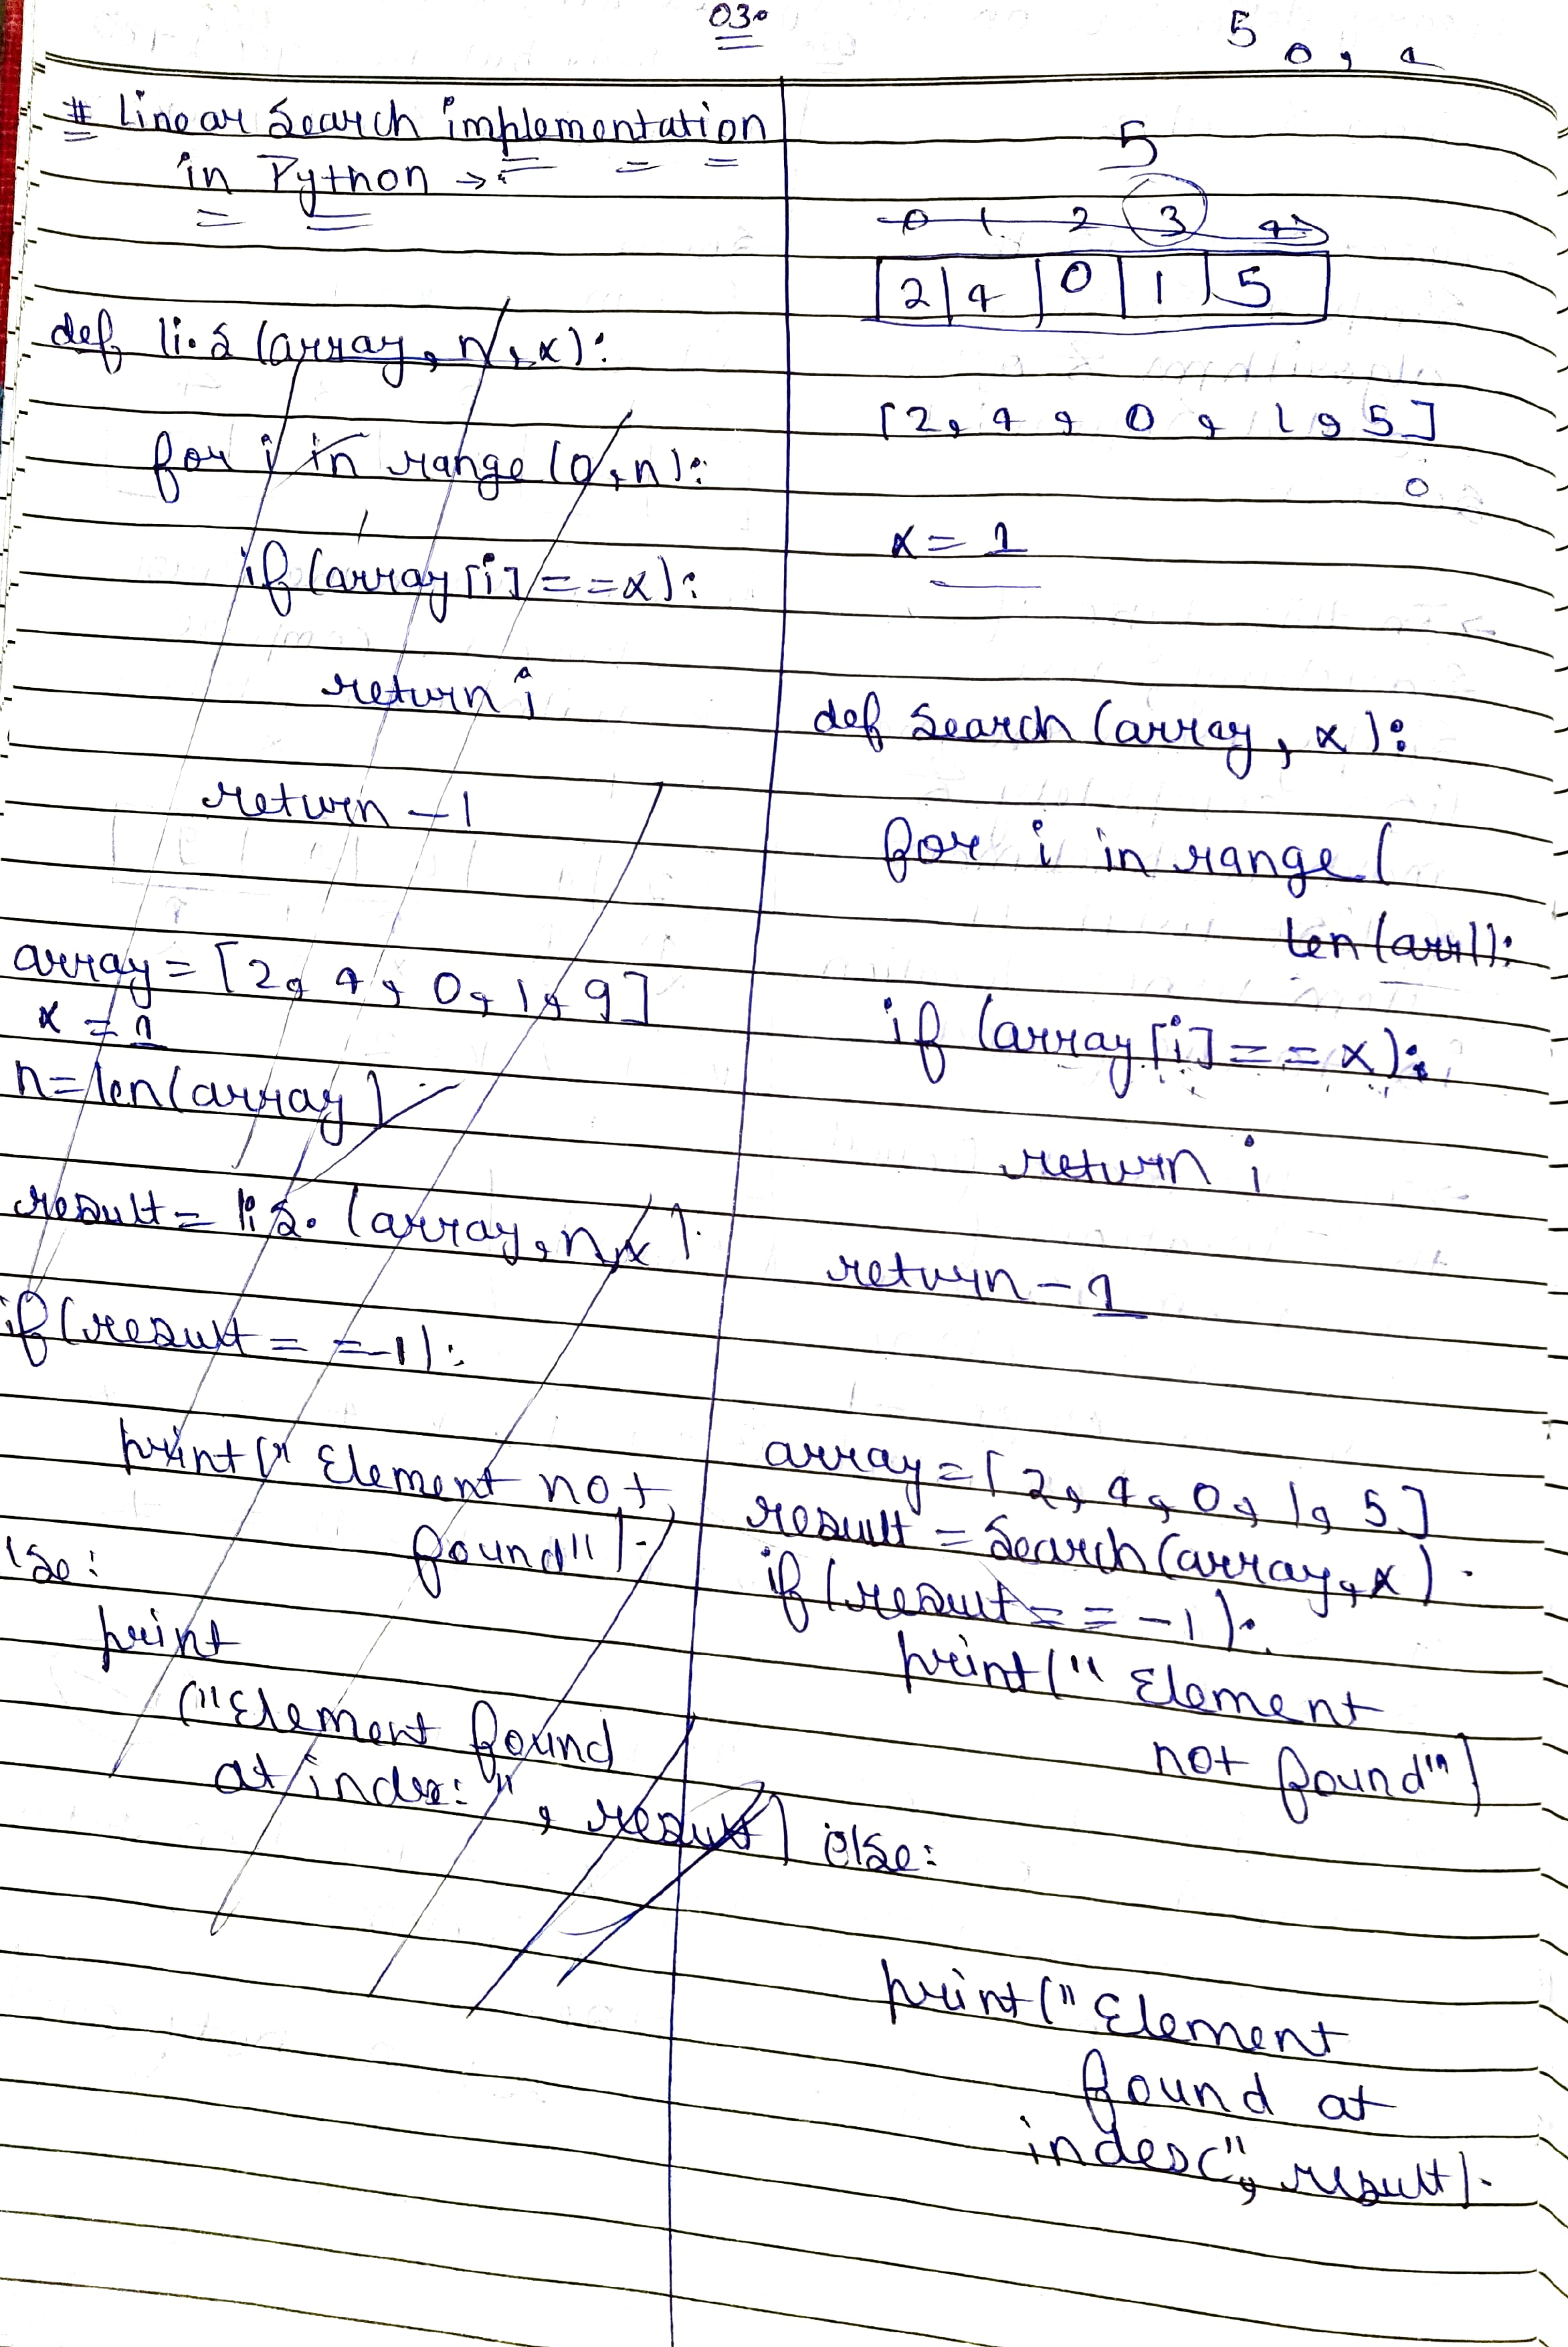 03.
5
0, 1
# Linear Search implementation
in Python →
def li.s (array, n, x):
for i in range (0, n):
if (array [i] == x):
return i
return -1
array = [2, 4, 0, 1, 9]
x = 1
n = len(array)
result = li s. (array, n, x).
if (result = = -1):
print (" Element not
found").
lse:
print
("Element found
at index: ", result)
5
0 1 2 3 4
2 4 0 1 5
[2, 4, 0, 1, 5]
x = 1
def Search (array, x):
for i in range (
len (arr)):
if (array [i] = = x):
return i
return -1
array = [2, 4, 0, 1, 5]
result = Search (array, x).
if (result = = -1):
print (" Element
not found")
else:
print (" Element
found at
index", result).